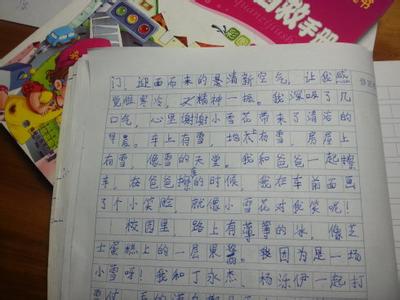 书
自救手册
门！迎面而来的是清新空气，让我感
觉既寒冷，又精神一振。我深吸了几
口气，心里谢谢小雪花带来了清洁的
早晨。车上有雪，地上有雪，房屋上
有雪，像雪的天堂。我和爸爸一起擦
车，在爸爸擦车的时候，我在车前面画
了个小笑脸，就像小雪花对我笑呢！
校园里，路上有薄薄的冰，像芝
士蛋糕上的一层果酱。因为是一场
小雪呀！我和丁永杰、杨泺伊一起打